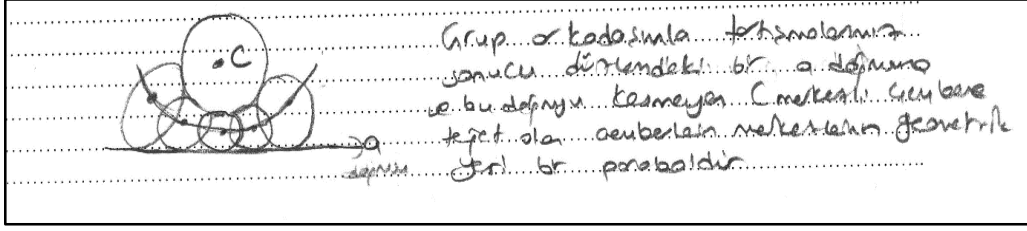 C
Grup arkadaşımla tartışmalarımız
sonucu düzlemdeki bir a doğrusuna
ve bu doğruyu kesmeyen C merkezli çembere
teğet olan çemberlerin merkezlerinin geometrik
yeri bir paraboldür
a
doğrusu